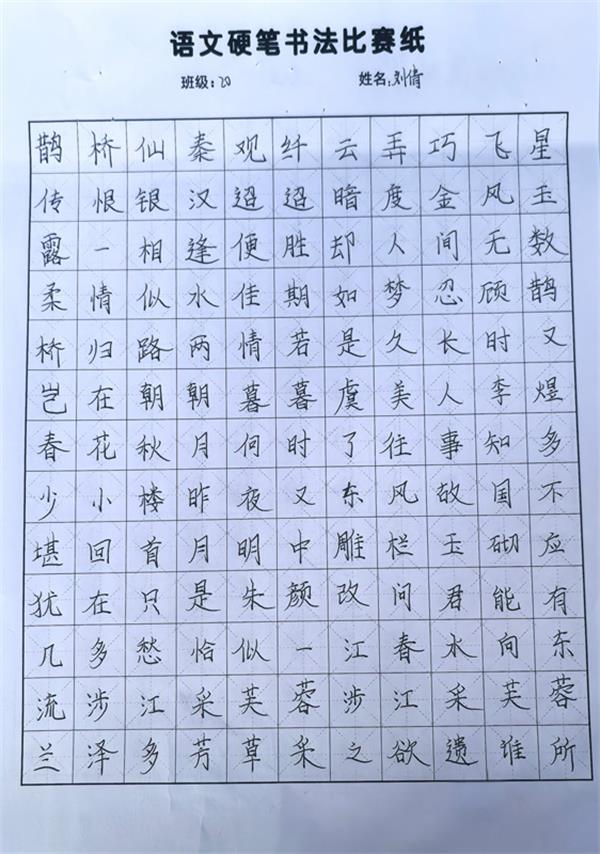 语文硬笔书法比赛纸
班级:20 姓名:刘倩
鹊桥仙秦观纤云弄巧飞星
传恨银汉迢迢暗度金风玉
露一相逢便胜却人间无数
柔情似水佳期如梦忍顾鹊
桥归路两情若是久长时又
岂在朝朝暮暮虞美人李煜
春花秋月何时了往事知多
少小楼昨夜又东风故国不
堪回首月明中雕栏玉砌应
犹在只是朱颜改问君能有
几多愁恰似一江春水向东
流涉江采芙蓉涉江采芙蓉
兰泽多芳草采之欲遗谁所